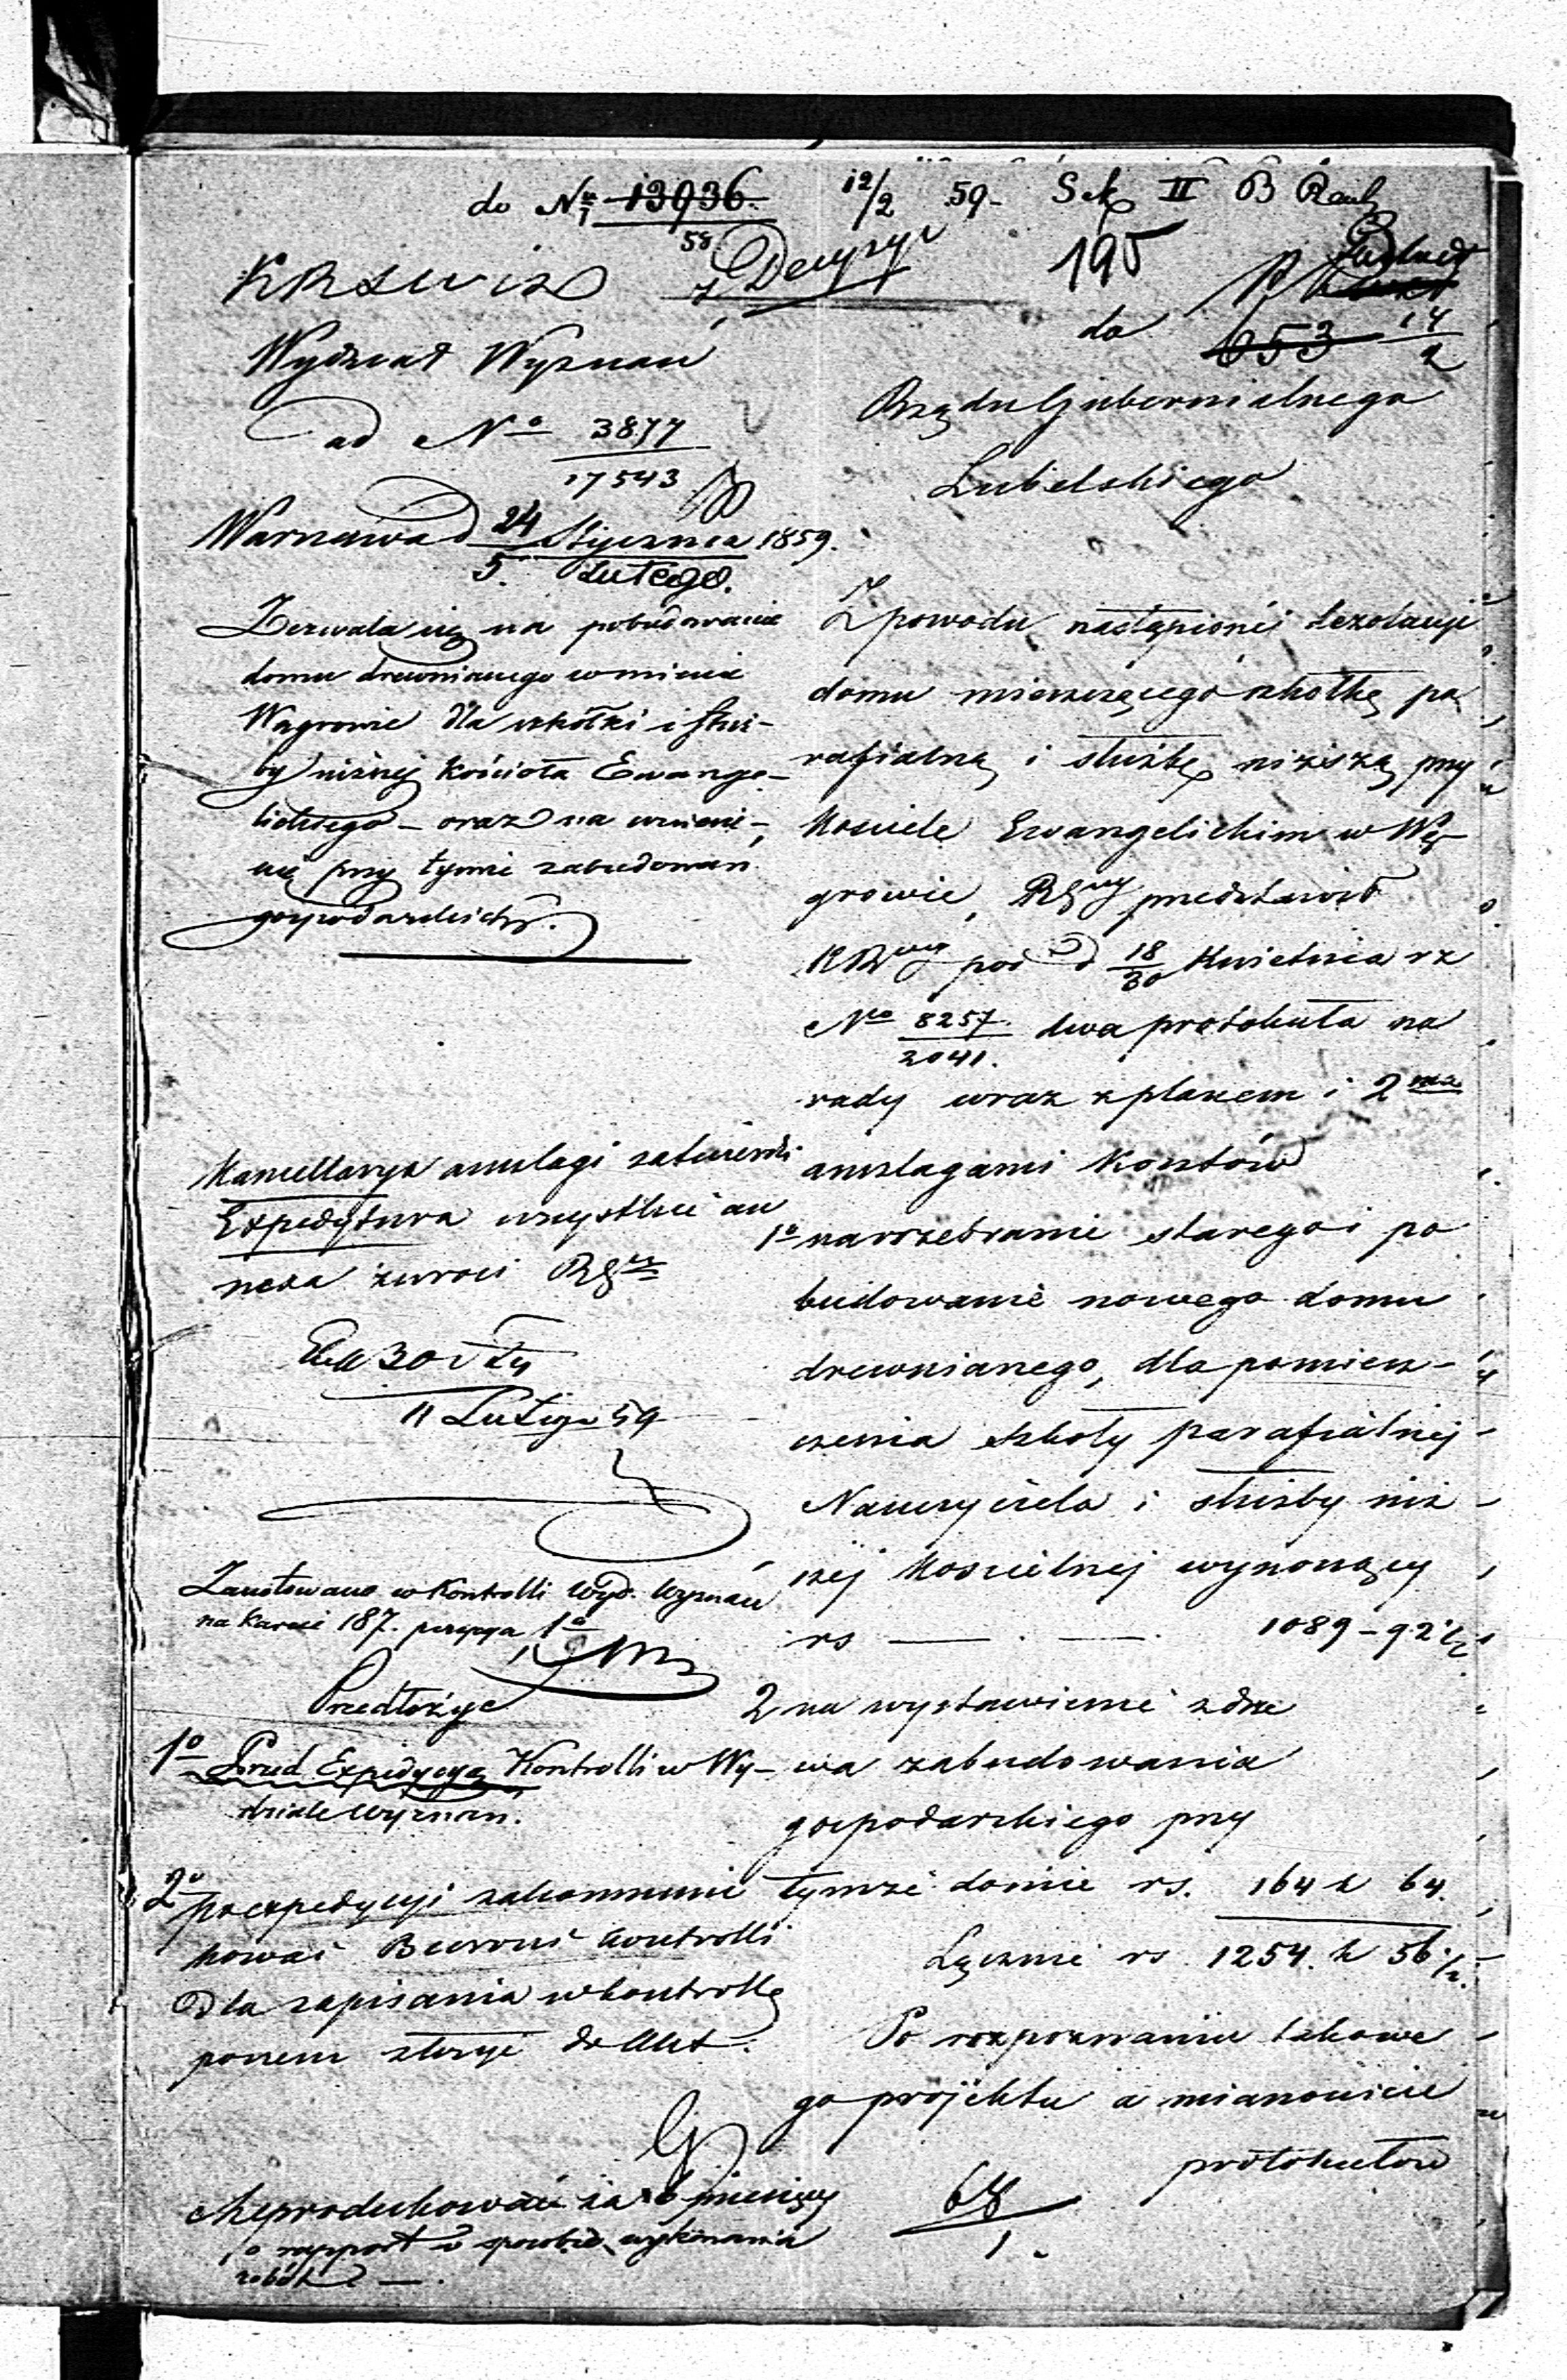 do No 13936
58
12/2 59 Sek II B
z Decyzyi
195
KRSWiD
Wydział Wyznań
do 653 14/2
ad No 3877
17543
Rządu Gubernialnego
Lubelskiego
Warszawa d 24 Stycznia 1859.
5. Lutego.
Zezwala się na pobudowanie
domu drewnianego w mieście
Węgrowie dla szkółki i służ-
by niższej Kościoła Ewange-
lickiego – oraz na wzniesie-
nie przy tymże zabudowań
gospodarskich.
Kancellarya anszlagi zatwierdzi
Expedytura wszystkie an
nexa zwróci RGu
30
11 Lutego 59
Zanotowano w Kontrolli Wyd. Wyznań
na karcie 187. pozycya 1a
Przedłożyć
1o Przed Expedycyą Kontrolli w Wy-
dziale Wyznań.
2o po expedycyi zakommuni
kować Biurowi Kontrolli
Dla zapisania w kontrollę
poczem złożyć do Akt.
Reprodukować za 6 miesięcy
o rapport o sposobie wykonania
robót —.
Z powodu nastąpionéj dezolacyi
domu mieszczącego szkółkę pa
rafialną i służbę niższą przy
Kościele Ewangelickim w Wę-
growie, RGny przedstawił
KRwej pod d 18/30 Kwietnia rz
No 8257
2041.
dwa protokuła na
rady wraz z planem i 2ma
anszlagami kosztów
1o na rozebranie starego i po
budowanie nowego domu
drewnianego, dla pomiesz-
czenia szkoły parafialnej
Nauczyciela i służby niż
széj Kościelnej wynoszący
rs — . — . 1089 – 92 1/2
2 na wystawienie z drze
wa zabudowania
gospodarskiego przy
tymże domie rs. 164 k 64.
Łącznie rs. 1254. k 56 1/2.
Po rozpoznaniu takowe
go projektu a mianowicie
protokułów
68
1